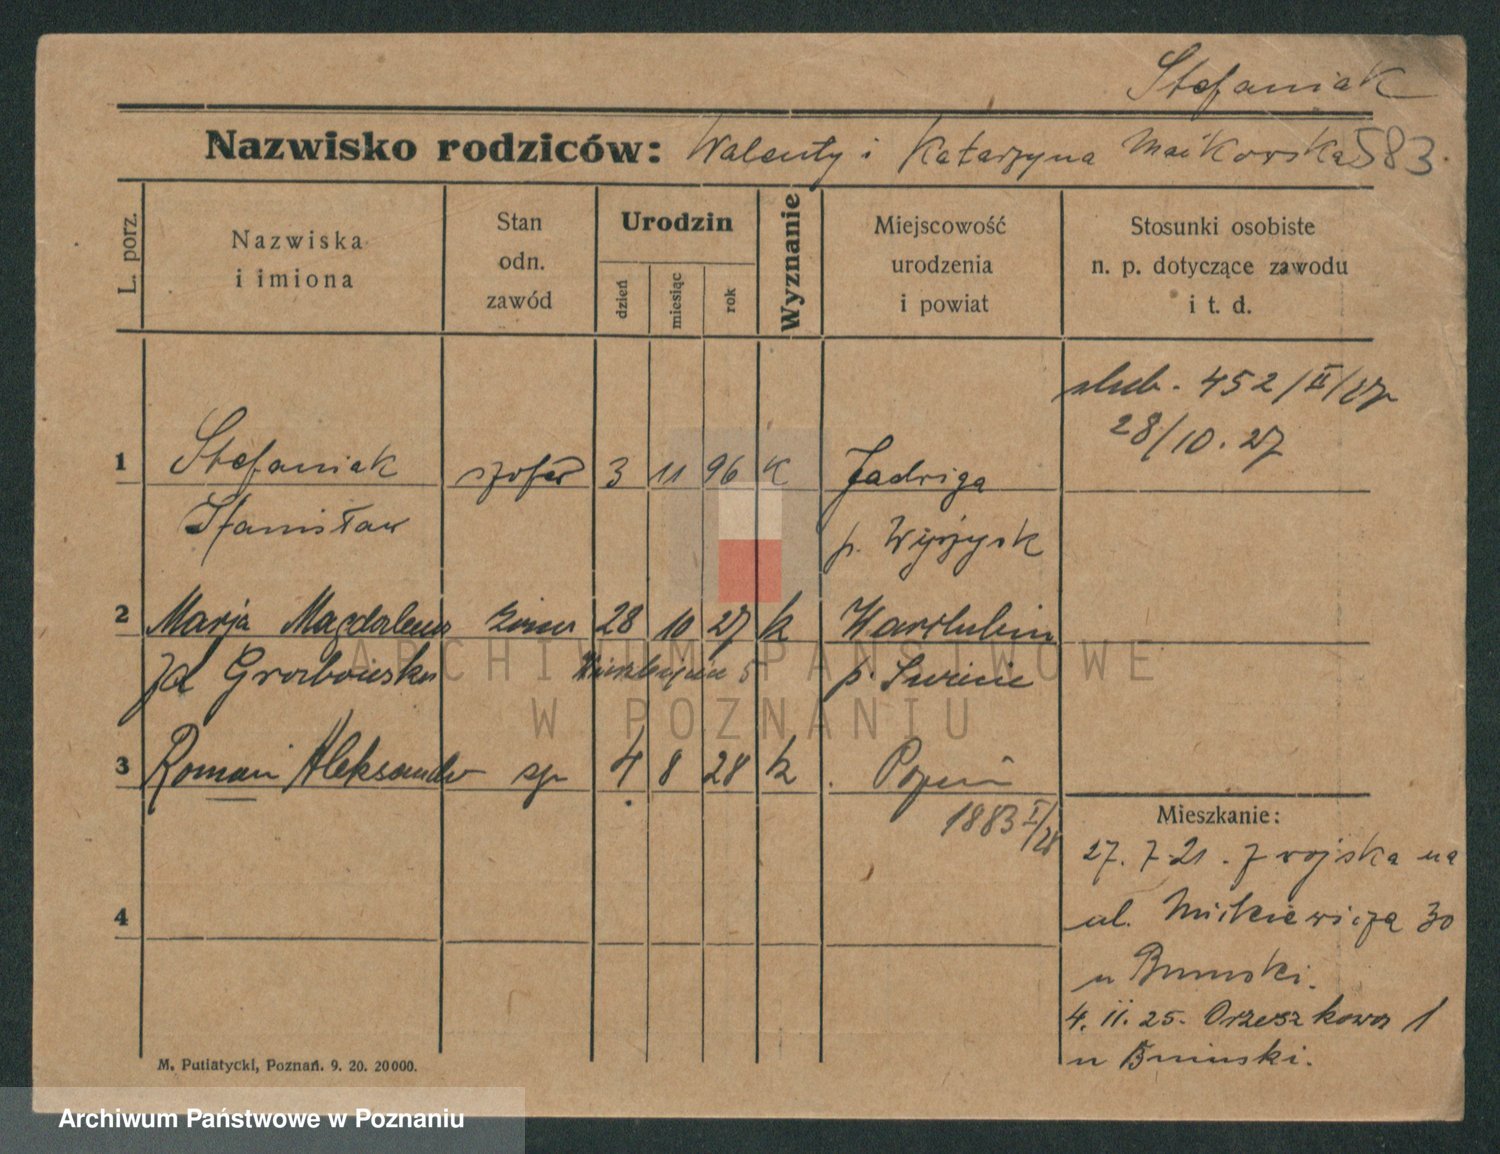 Stefaniak
Nazwisko rodziców: Walenty i Katarzyna Maikowska 583.
L. porz.
Nazwiska
i imiona
Stan
odn.
zawód
Urodzin
dzień
miesiąc
rok
Wyznanie
Miejscowość
urodzenia
i powiat
Stosunki osobiste
n. p. dotyczące zawodu
i t. d.
slub. 452/II/27
28/10. 27
1 Stefaniak szofer 3 11 96 K Jadriga
Stanisław p. Wyrzysk
2 Marja Magdalena żona 28 10 27 k Warlubin
zd p. Swiecie
3 Roman Aleksander syn 4 8 28 k Poznań
1883 I/28
Mieszkanie:
27. 7. 21. z wojska na
ul. Mickiewicza 30
u Bninski.
4
4. II. 25. Orzeszkowa 1
u Bninski.
M. Putiatycki, Poznań. 9. 20. 20000.
ARCHIWUM PAŃSTWOWE
W POZNANIU
Archiwum Państwowe w Poznaniu